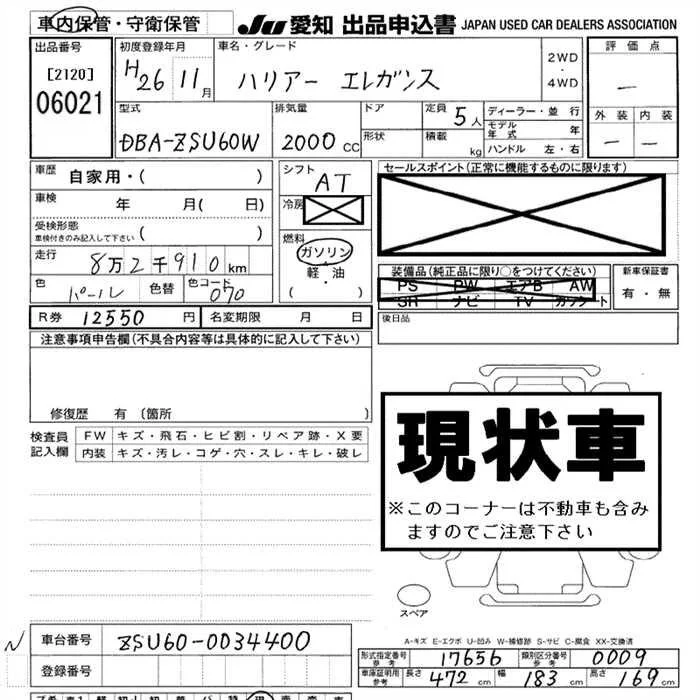 車内保管・守衛保管 JU 愛知 出品申込書 JAPAN USED CAR DEALERS ASSOCIATION
出品番号 初度登録年月 車名・グレード 評価点
[2120] H26 11月 ハリアー エレガンス 2WD・4WD ー
06021 型式 排気量 ドア 定員 5人 ディーラー・並行 外装 内装
DBA-ZSU60W 2000cc 形状 積載 kg モデル年式 年 ー ー
ハンドル 左・右
車歴 自家用・( ) シフト AT セールスポイント(正常に機能するものに限ります)
車検 年 月( 日) 冷房
受検形態 車検付きのみ記入して下さい ( ) 燃料
走行 8万2千910km ガソリン 装備品(純正品に限り○をつけてください) 新車保証書
色 パール 色替 色コード 070 軽・油 PS PW エアB AW 有・無
( ) SR ナビ TV カッケート
R券 12550円 名変期限 月 日 後日品
注意事項申告欄(不具合内容等は具体的に記入して下さい)
修復歴 有 〔箇所 〕
現状車
※このコーナーは不動車も含み
ますのでご注意下さい
検査員 FW キズ・飛石・ヒビ割・リペア跡・X要
記入欄 内装 キズ・汚レ・コゲ・穴・スレ・キレ・破レ
スペア
A-キズ E-エクボ U-凹み W-補修跡 S-サビ C-腐食 XX-交換済
車台番号 ZSU60-0034400
登録番号
形式指定番号 参考 17656 類別区分番号 参考 0009
車庫証明用 参考 長さ 472cm 幅 183cm 高さ 169cm